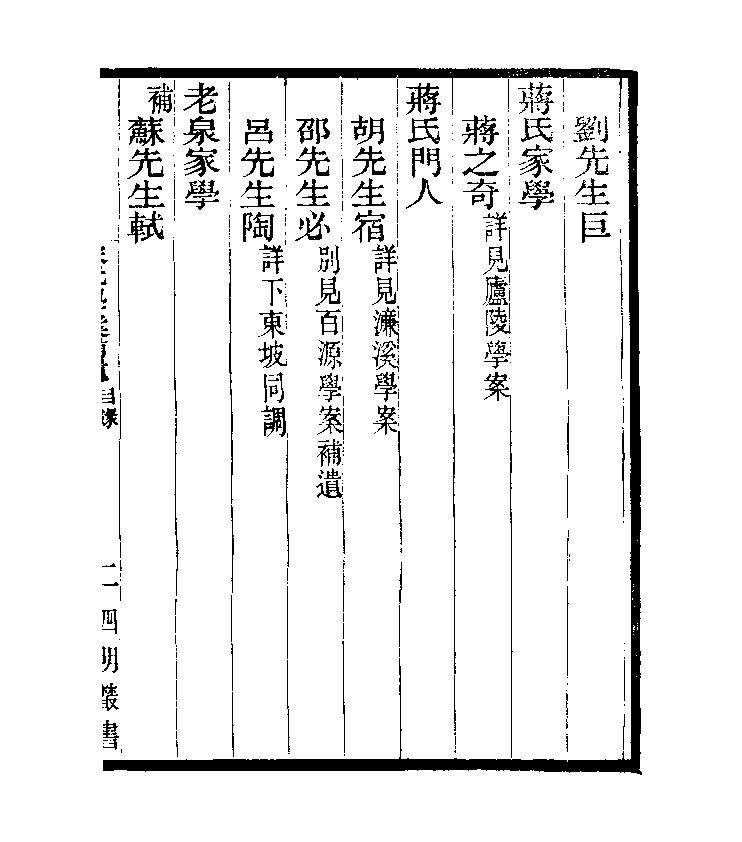 劉先生巨
蔣氏家學
蔣之奇詳見廬陵學案
蔣氏門人
胡先生宿詳見濂溪學案
邵先生必別見百源學案補遺
呂先生陶詳下東坡同調
老泉家學
補蘇先生軾
目錄
二
四明叢書